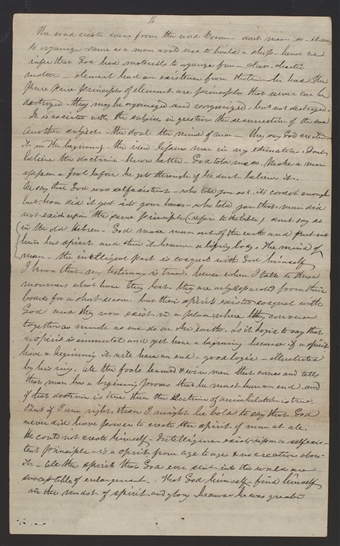 The word create came from the word
to organize same as a man would use to build a ship. hence we
infer that God had materials to organize from - chaos - chaotic
matter - element had an existence from the time he had. The
pure pure principles of element, are principles that never can be
destroyed - they may be organized and reorganized but not destroyed.
It is associated with the subject in question the resurrection of the dead
Another subject - the soul - the mind of man - they say God created
it in the beginning. the idea lessens man in my estimation. Don't
believe the doctrine - know better - God told me so. Make a man
appear a fool before he gets through if he dont believe it.
We say that God was self existent - who told you so? it's correct enough
but how did it get into your heads - who told you that man did
not exist upon the same principle (refer to the bible) dont say so
in the old Hebrew. God made man out of the earth and put in
him his spirit and then it became a living body. The mind of
man - the intelligent part is coequal with God himself
I know that my testimony is true, hence when I talk to these
mourners what have they lost they are only separated from their
bodies for a short season but their spirit existed coequal with
God and they now exist in a place where they converse
together as much as we do on the earth. Is it logic to say that
a spirit is immortal and yet have a beginning because if a spirit
have a beginning it will have an end. good logic - illustrated
by his ring. All the fools learned & wise men that comes and tells
that man has a beginning proves that he must have an end and
if that doctrine is true then the doctrine of annihilation is true.
But if I am right then I might be bold to say that God
never did have power to create the spirit of man at all.
He could not create himself - Intelligence exists upon a self exis-
tent principle - is a spirit from age to age & no creation about
it - All the spirits that God ever sent into the world are
susceptible of enlargement. That God himself - find himself
in the midst of spirit and glory because he was greater